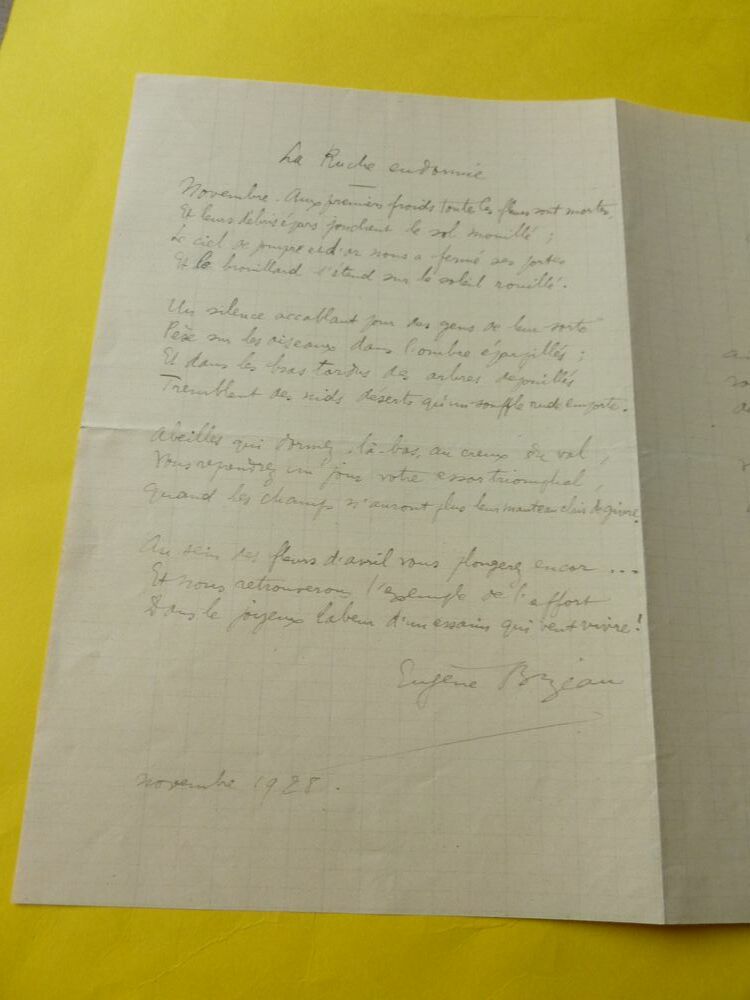 La Ruche endormie
Novembre. Aux premiers froids toutes les fleurs sont mortes,
Et leurs débris épars jonchent le sol mouillé ;
Le ciel de pourpre et d'or nous a fermé ses portes
Et le brouillard s'étend sur le soleil rouillé.
Un silence accablant pour des gens de leur sorte
Pèse sur les oiseaux dans l'ombre éparpillés ;
Et dans les bras tordus des arbres dépouillés
Tremblent des nids déserts qu'un souffle rude emporte.
Abeilles qui dormez, là-bas, au creux du val,
Vous reprendrez un jour votre essor triomphal,
Quand les champs n'auront plus leur manteau clair de givre.
Au sein des fleurs d'avril vous plongerez encor ...
Et nous retrouverons l'exemple de l'effort
Dans le joyeux labeur d'un essaim qui veut vivre !
Eugène Bizeau
novembre 1928.